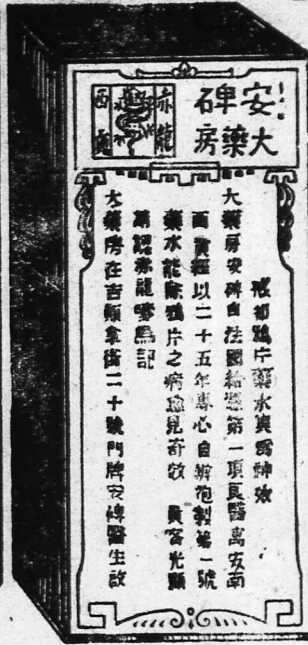 安碑
大藥房
赤龍
戒却鴉片藥水爲神效
大藥房安碑自法國給獎第一項良醫寓安南
西貢經以二十五年專心自辦泡製第一號
藥水能除鴉片之病愈見奇效 貴客光顧
請認赤龍嘜爲記
大藥房在吉拿街二十號門牌安碑醫生啟